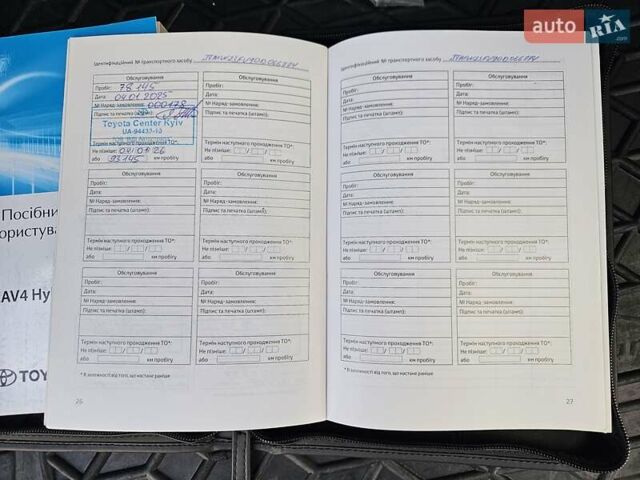 auto RIA.com
Посібни
ористува
AV4 Hy
TOY
Ідентифікаційний № транспортного засобу
Обслуговування
Обслуговування
Пробіг: 78 145
Пробіг:
Дата: 04.01 2025
Дата:
№ Наряд-замовлення: 000178
№ Наряд-замовлення:
Підпис та печатка (штамп):
Підпис та печатка (штамп):
Toyota Center Kyiv
Термін наступного проходження ТО*:
Термін наступного проходження ТО*:
Не пізніше: 04 01 26
Не пізніше:
або 93145 км пробігу
або км пробігу
Обслуговування
Обслуговування
Пробіг:
Пробіг:
Дата:
Дата:
№ Наряд-замовлення:
№ Наряд-замовлення:
Підпис та печатка (штамп):
Підпис та печатка (штамп):
Термін наступного проходження ТО*:
Термін наступного проходження ТО*:
Не пізніше:
Не пізніше:
або км пробігу
або км пробігу
Обслуговування
Обслуговування
Пробіг:
Пробіг:
Дата:
Дата:
№ Наряд-замовлення:
№ Наряд-замовлення:
Підпис та печатка (штамп):
Підпис та печатка (штамп):
Термін наступного проходження ТО*:
Термін наступного проходження ТО*:
Не пізніше:
Не пізніше:
або км пробігу
або км пробігу
* В залежності від того, що настане раніше
26
Ідентифікаційний № транспортного засобу
Обслуговування
Обслуговування
Пробіг:
Пробіг:
Дата:
Дата:
№ Наряд-замовлення:
№ Наряд-замовлення:
Підпис та печатка (штамп):
Підпис та печатка (штамп):
Термін наступного проходження ТО*:
Термін наступного проходження ТО*:
Не пізніше:
Не пізніше:
або км пробігу
або км пробігу
Обслуговування
Обслуговування
Пробіг:
Пробіг:
Дата:
Дата:
№ Наряд-замовлення:
№ Наряд-замовлення:
Підпис та печатка (штамп):
Підпис та печатка (штамп):
Термін наступного проходження ТО*:
Термін наступного проходження ТО*:
Не пізніше:
Не пізніше:
або км пробігу
або км пробігу
Обслуговування
Обслуговування
Пробіг:
Пробіг:
Дата:
Дата:
№ Наряд-замовлення:
№ Наряд-замовлення:
Підпис та печатка (штамп):
Підпис та печатка (штамп):
Термін наступного проходження ТО*:
Термін наступного проходження ТО*:
Не пізніше:
Не пізніше:
або км пробігу
або км пробігу
* В залежності від того, що настане раніше
27